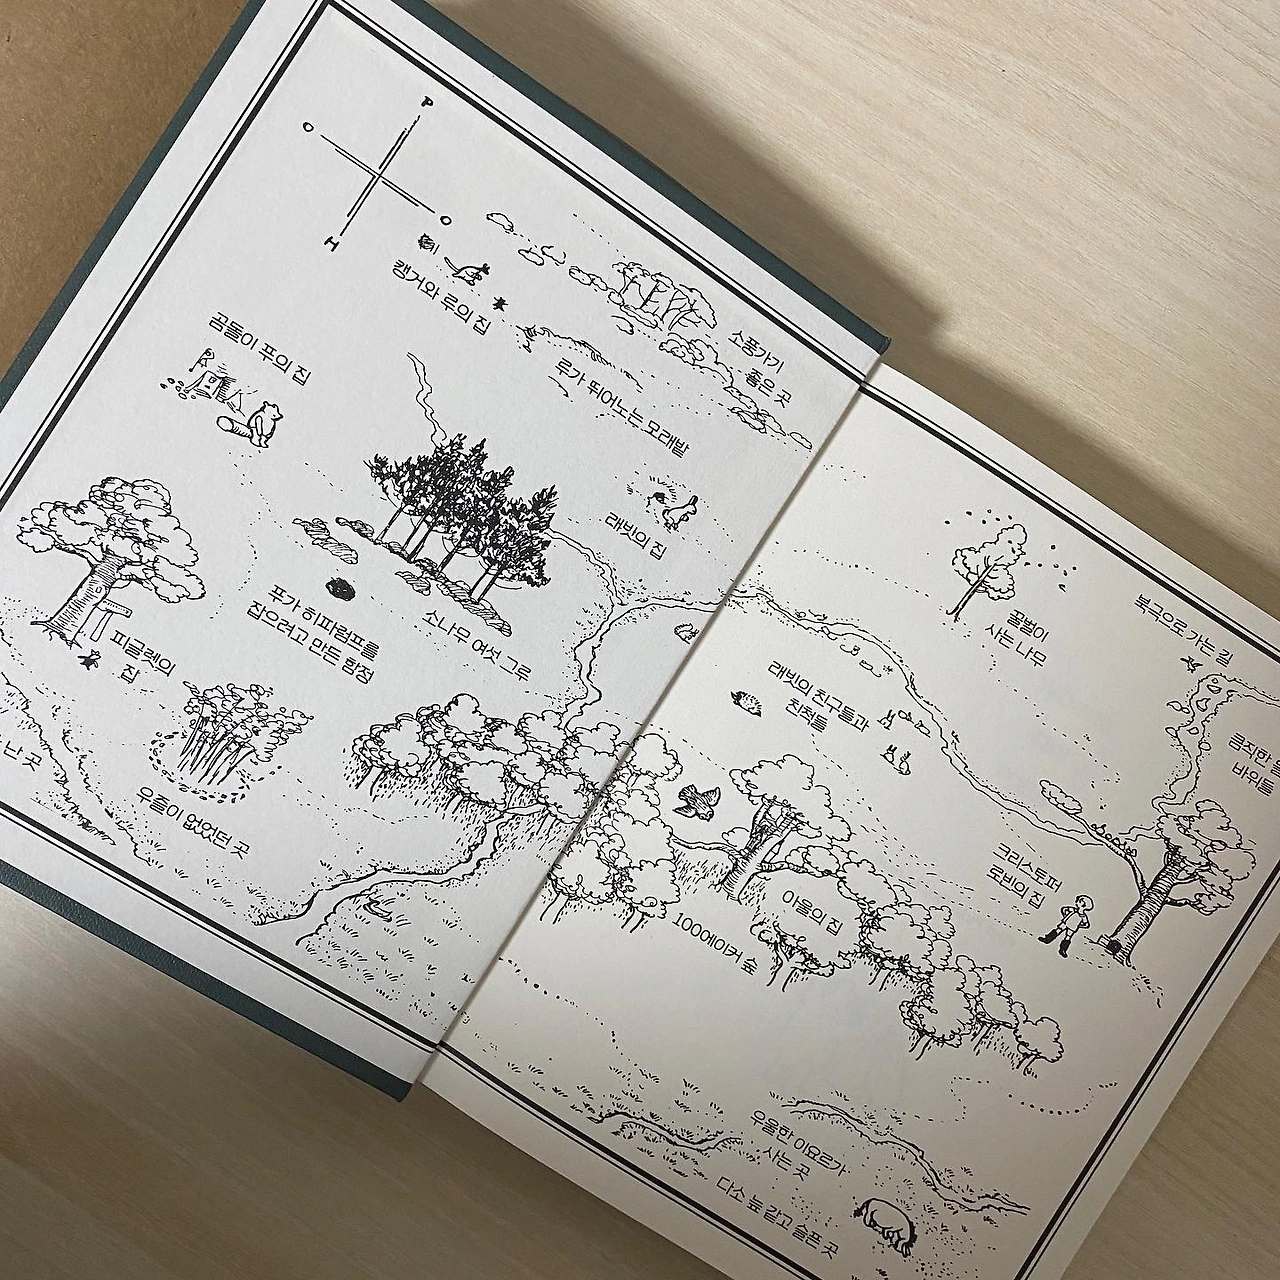 P
O
O
H
캥거와 루의 집
소풍가기
좋은 곳
곰돌이 푸의 집
루가 뛰어노는 모래밭
래빗의 집
푸가 히파럼프를
잡으려고 만든 함정
소나무 여섯 그루
피글렛의
집
난 곳
우즐이 없었던 곳
꿀벌이
사는 나무
북극으로 가는 길
래빗의 친구들과
친척들
큼직한
바위들
크리스토퍼
로빈의 집
아울의 집
100에이커 숲
우울한 이요르가
사는 곳
다소 늪 같고 슬픈 곳